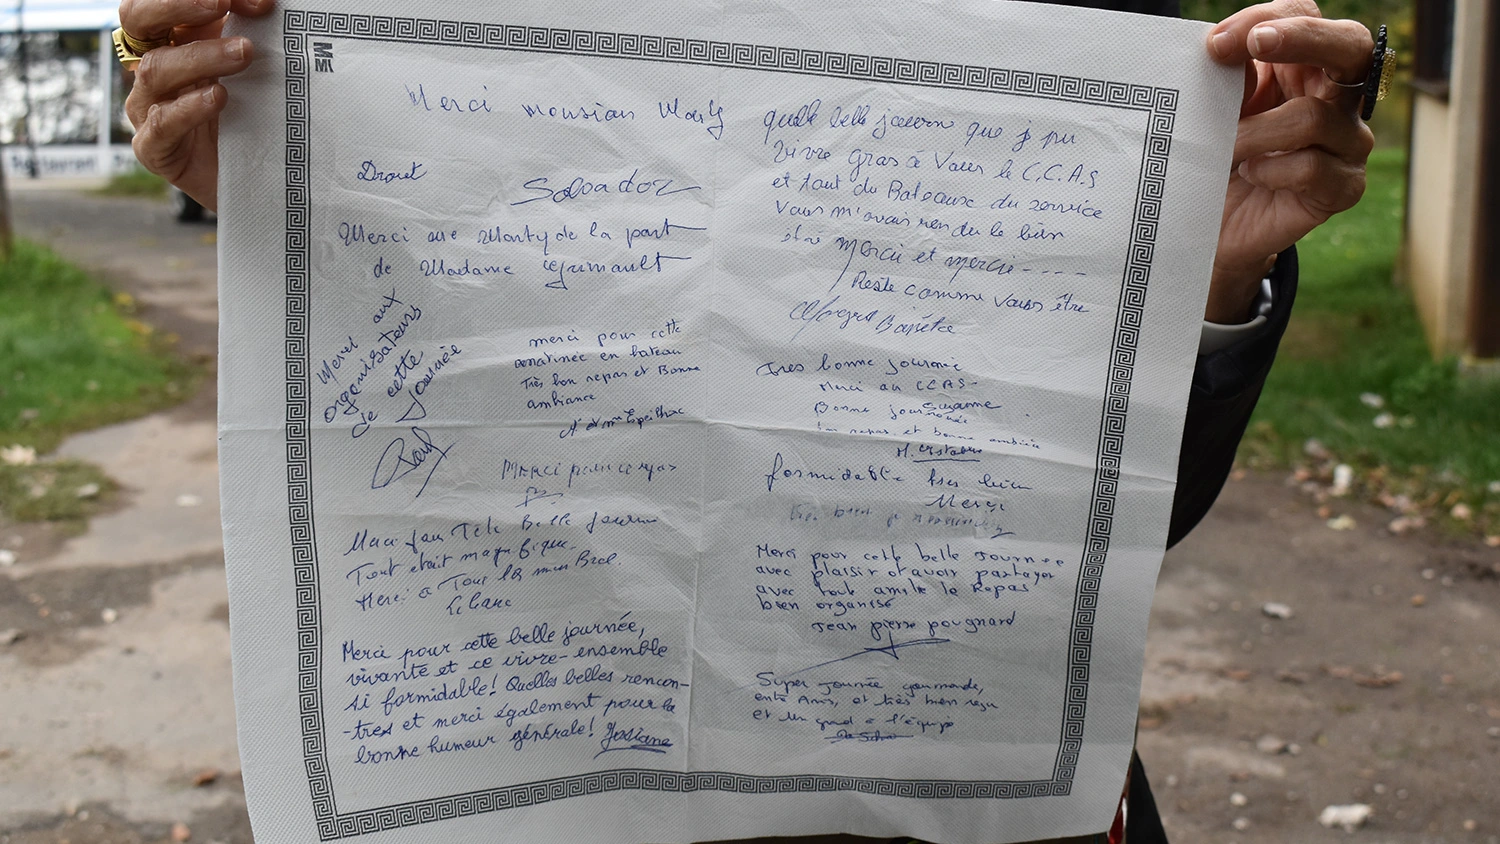 Merci monsian Marty
Drouet
Salvador
Merci me Marty de la part
de Madame Grimault
Merci aux
organisateurs
de cette
Journée
merci pour cette
matinée en bateau
Très bon repas et Bonne
ambiance
Merci pour ce repas
Merci pour Belle Journé
Tout était magnifique.
Merci a Tous
Merci pour cette belle journée,
vivante et ce vivre-ensemble
si formidable! Quelles belles rencon-
-tres et merci également pour la
bonne humeur générale! Josiane
quelle belle journ que j pu
vivre gras à Vous le C.C.A.S
et tout du Bateaux du service
Vous m'avais rendu le bien
être Merci et mercie - - - -
Reste comme vous être
Très bonne journée
Merci au CCAS-
Suzanne
Bonne journée
bon repas et bonne ambiance
formidable très bien
Merci
Très bien
Merci pour cette belle Journee
avec plaisir d'avoir partager
avec tout amitie le Repas
bien organisé
Jean pierre pougnard
Super Journée gourmande,
entre Amis, et très bien reçu
et un grand à l'équipe
Da Silva
Restaurant